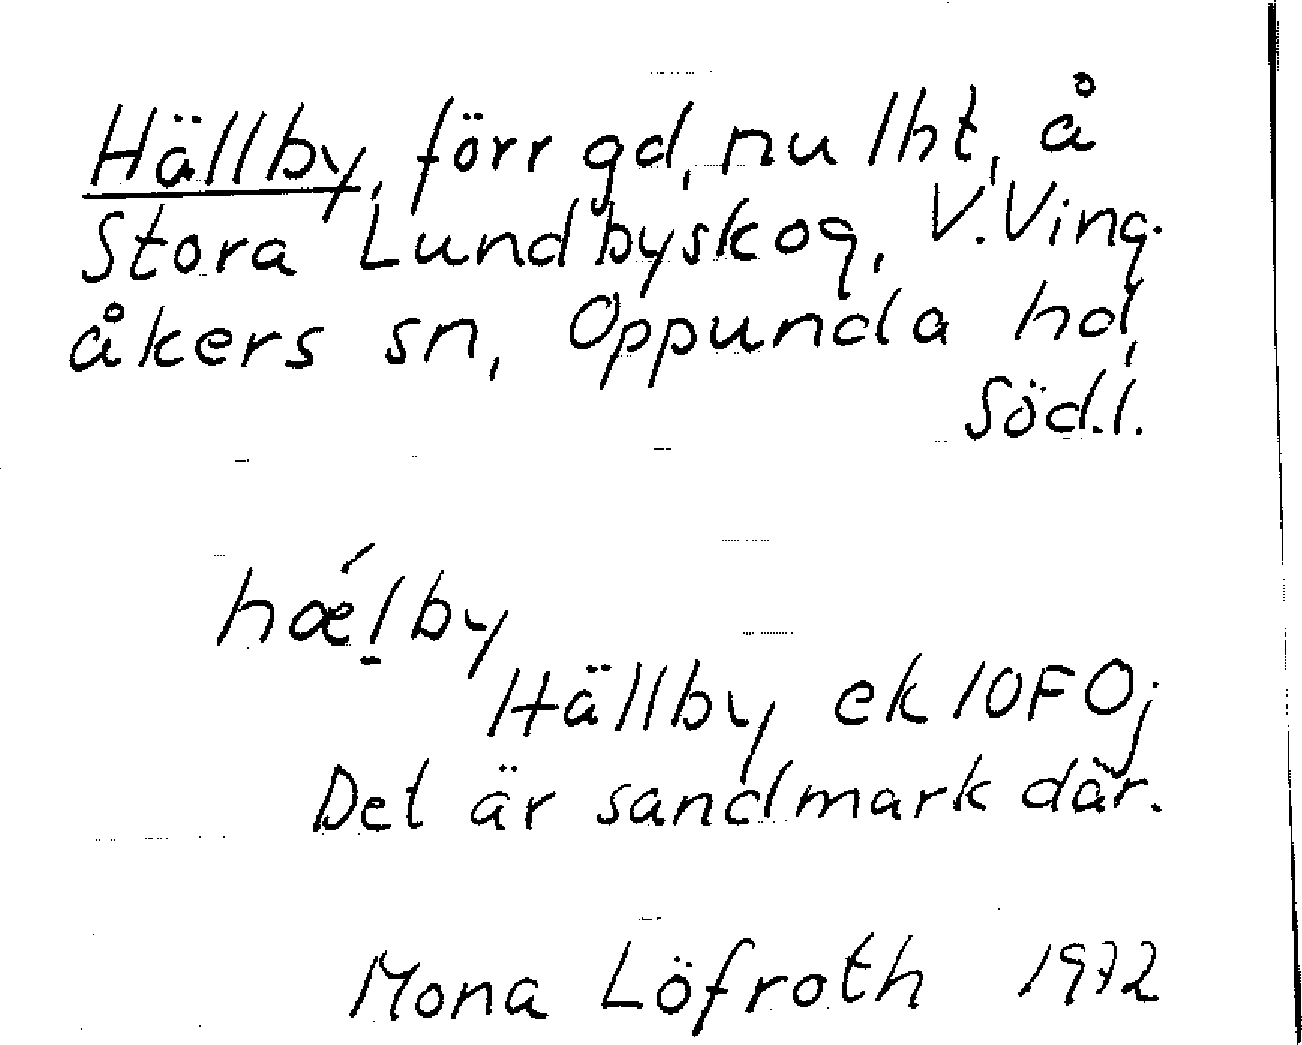 Hällby, förr gd, nu lht, å
Stora Lundbyskog, V. Ving-
åkers sn, Oppunda hd,
Söd.l.
hǽḷby
Hällby ek 10F 0j
Det är sandmark där.
Mona Löfroth 1972